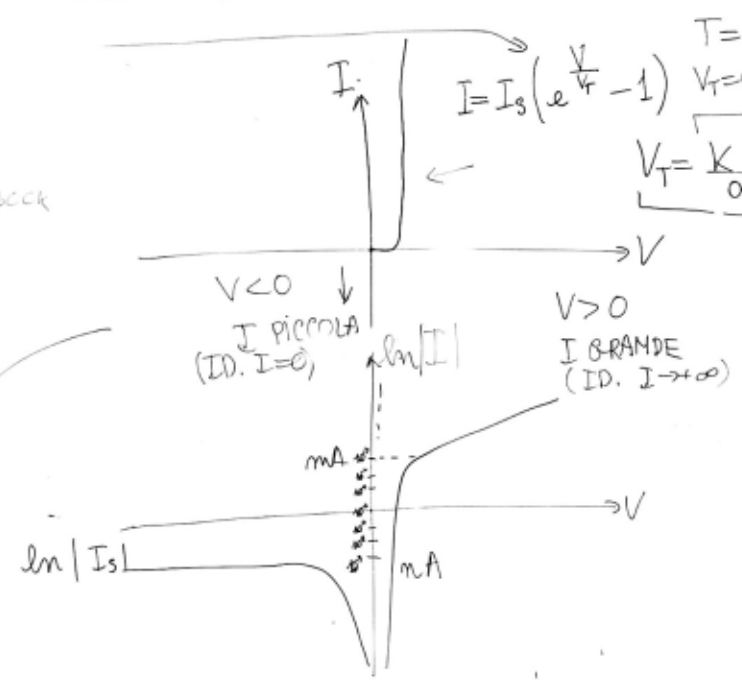 T=
I.
I=I_s(e^{V/V_T} -1)
V_T=
V_T= K
V
V<0
I PICCOLA
(ID. I=0)
V>0
I GRANDE
(ID. I→+∞)
ln|I|
mA
V
ln|Is|
nA